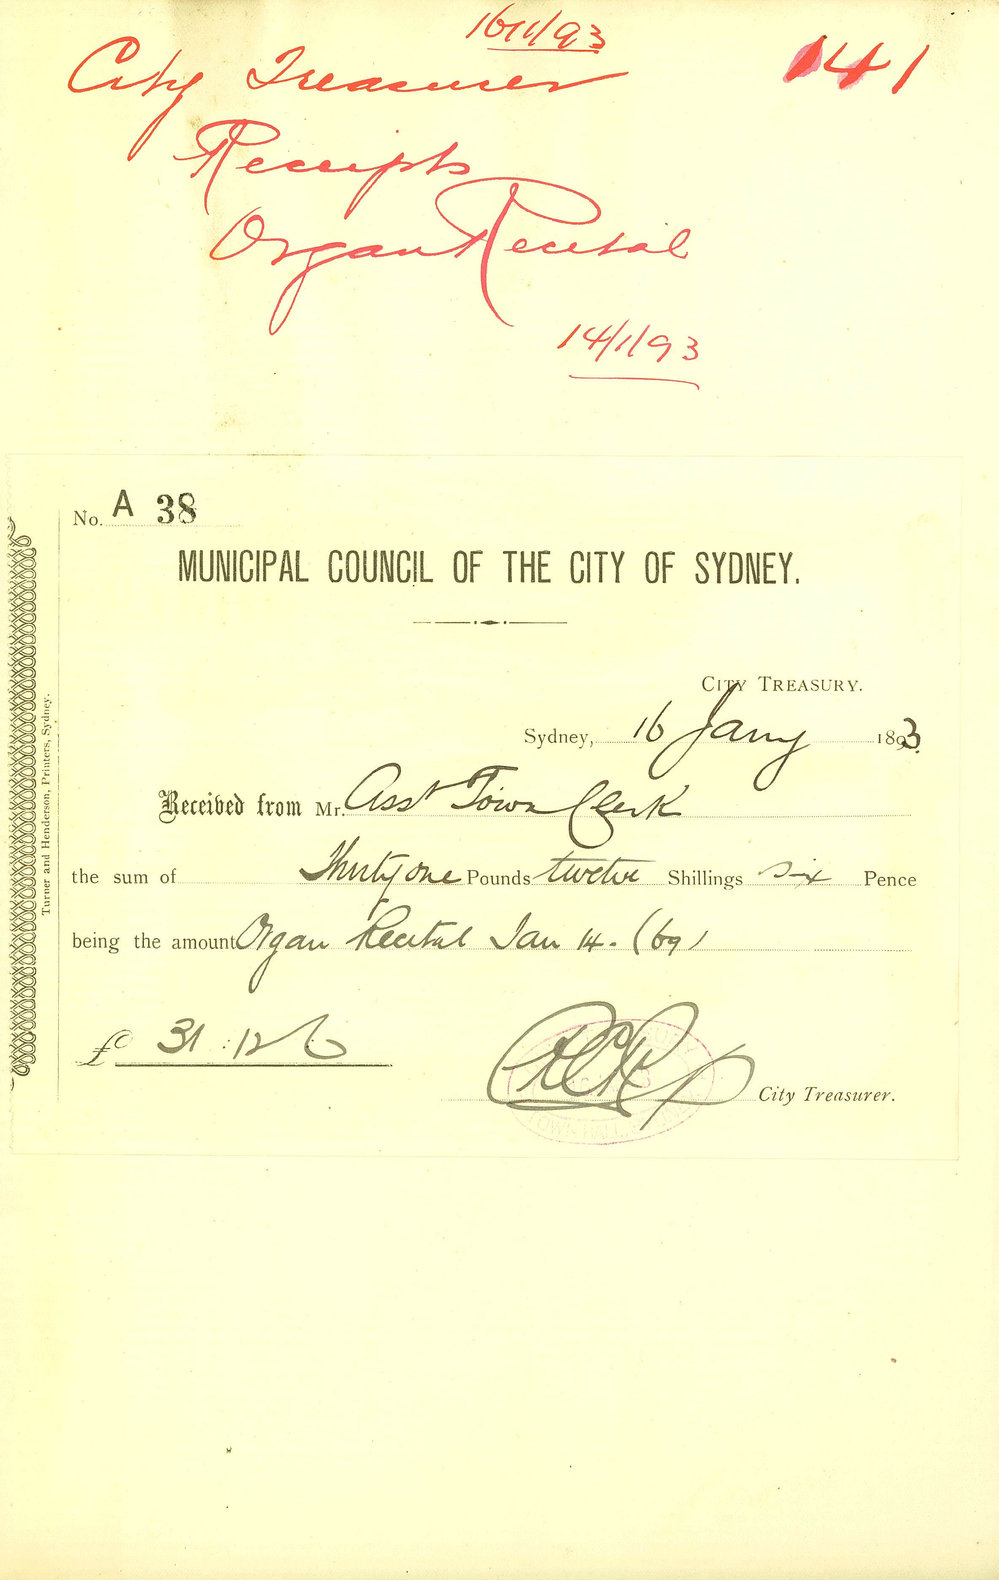 16/1/93
City Treasurer 141
Receipts
Organ Recital
14/1/93
No. A 38
MUNICIPAL COUNCIL OF THE CITY OF SYDNEY.
CITY TREASURY.
Sydney, 16 Jany 1893.
Received from Mr. Asst Town Clerk
the sum of Thirty one Pounds twelve Shillings six Pence
being the amount Organ Recital Jan 14. (69)
£ 31:12 6
City Treasurer.
TOWN HALL
Turner and Henderson, Printers, Sydney.